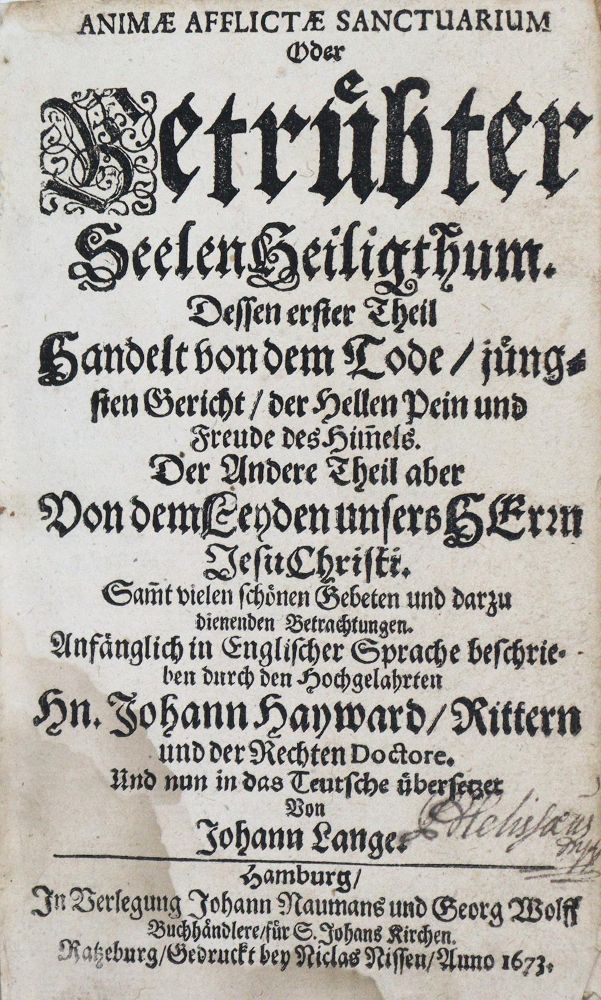 ANIMÆ AFFLICTÆ SANCTUARIUM
Oder
Betrůbter
Seelen Heiligthum.
Dessen erster Theil
Handelt von dem Tode / jůng⸗
sten Gericht / der Hellen Pein und
Freude des Him̃els.
Der Andere Theil aber
Von dem Leyden unsers HErrn
Jesu Christi.
Sam̃t vielen schönen Gebeten und darzu
dienenden Betrachtungen.
Anfänglich in Englischer Sprache beschrie⸗
ben durch den Hochgelahrten
Hn. Johann Hayward / Rittern
und der Rechten Doctore.
Und nun in das Teutsche übersetzet
Von
Johann Lange.
Hamburg /
In Verlegung Johann Naumans und Georg Wolff
Buchhåndlere / für S. Johans Kirchen.
Ratzeburg / Gedruckt bey Niclas Nissen / Anno 1673.